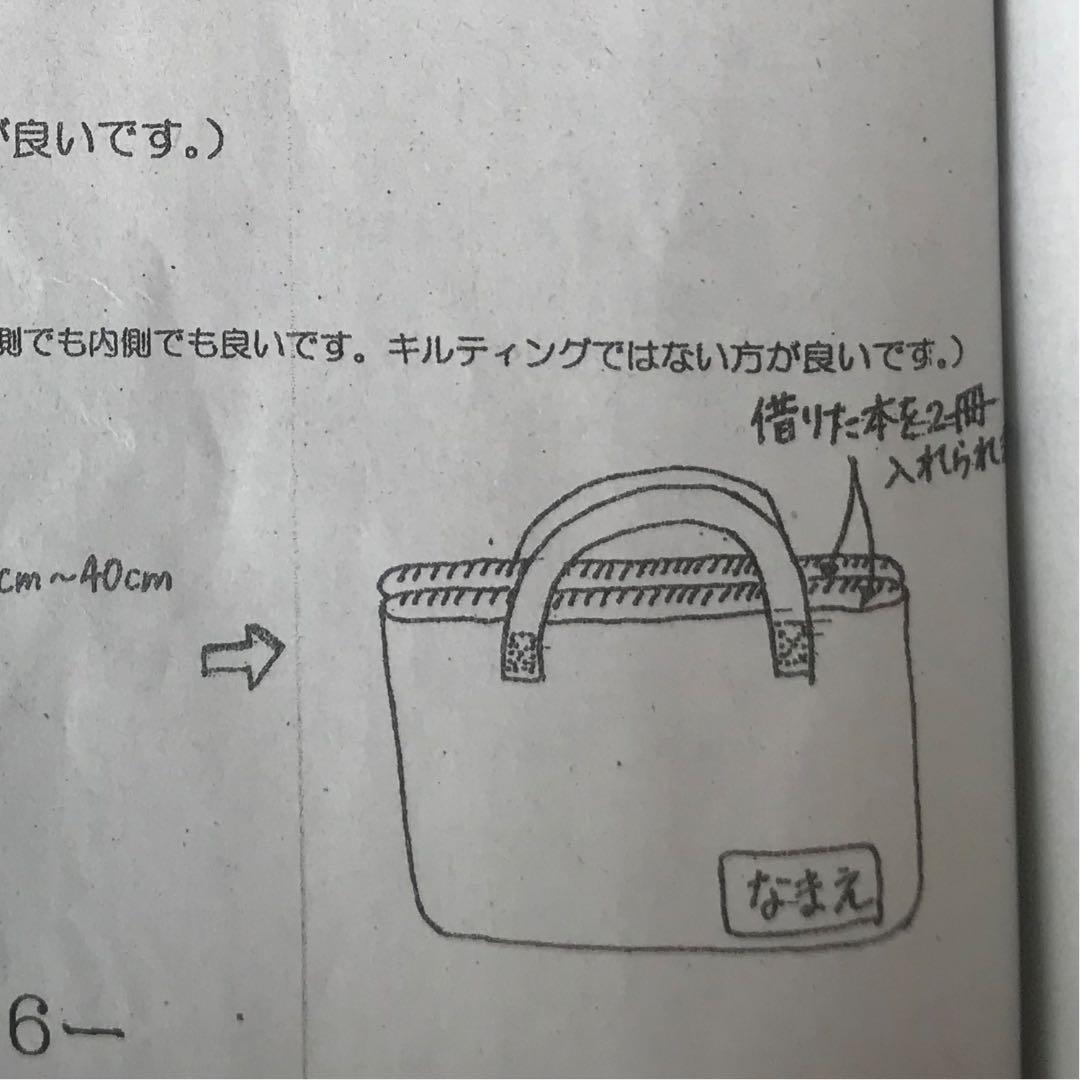 が良いです。）
側でも内側でも良いです。キルティングではない方が良いです。）
借りた本を2冊
入れられ
cm～40cm
なまえ
6－